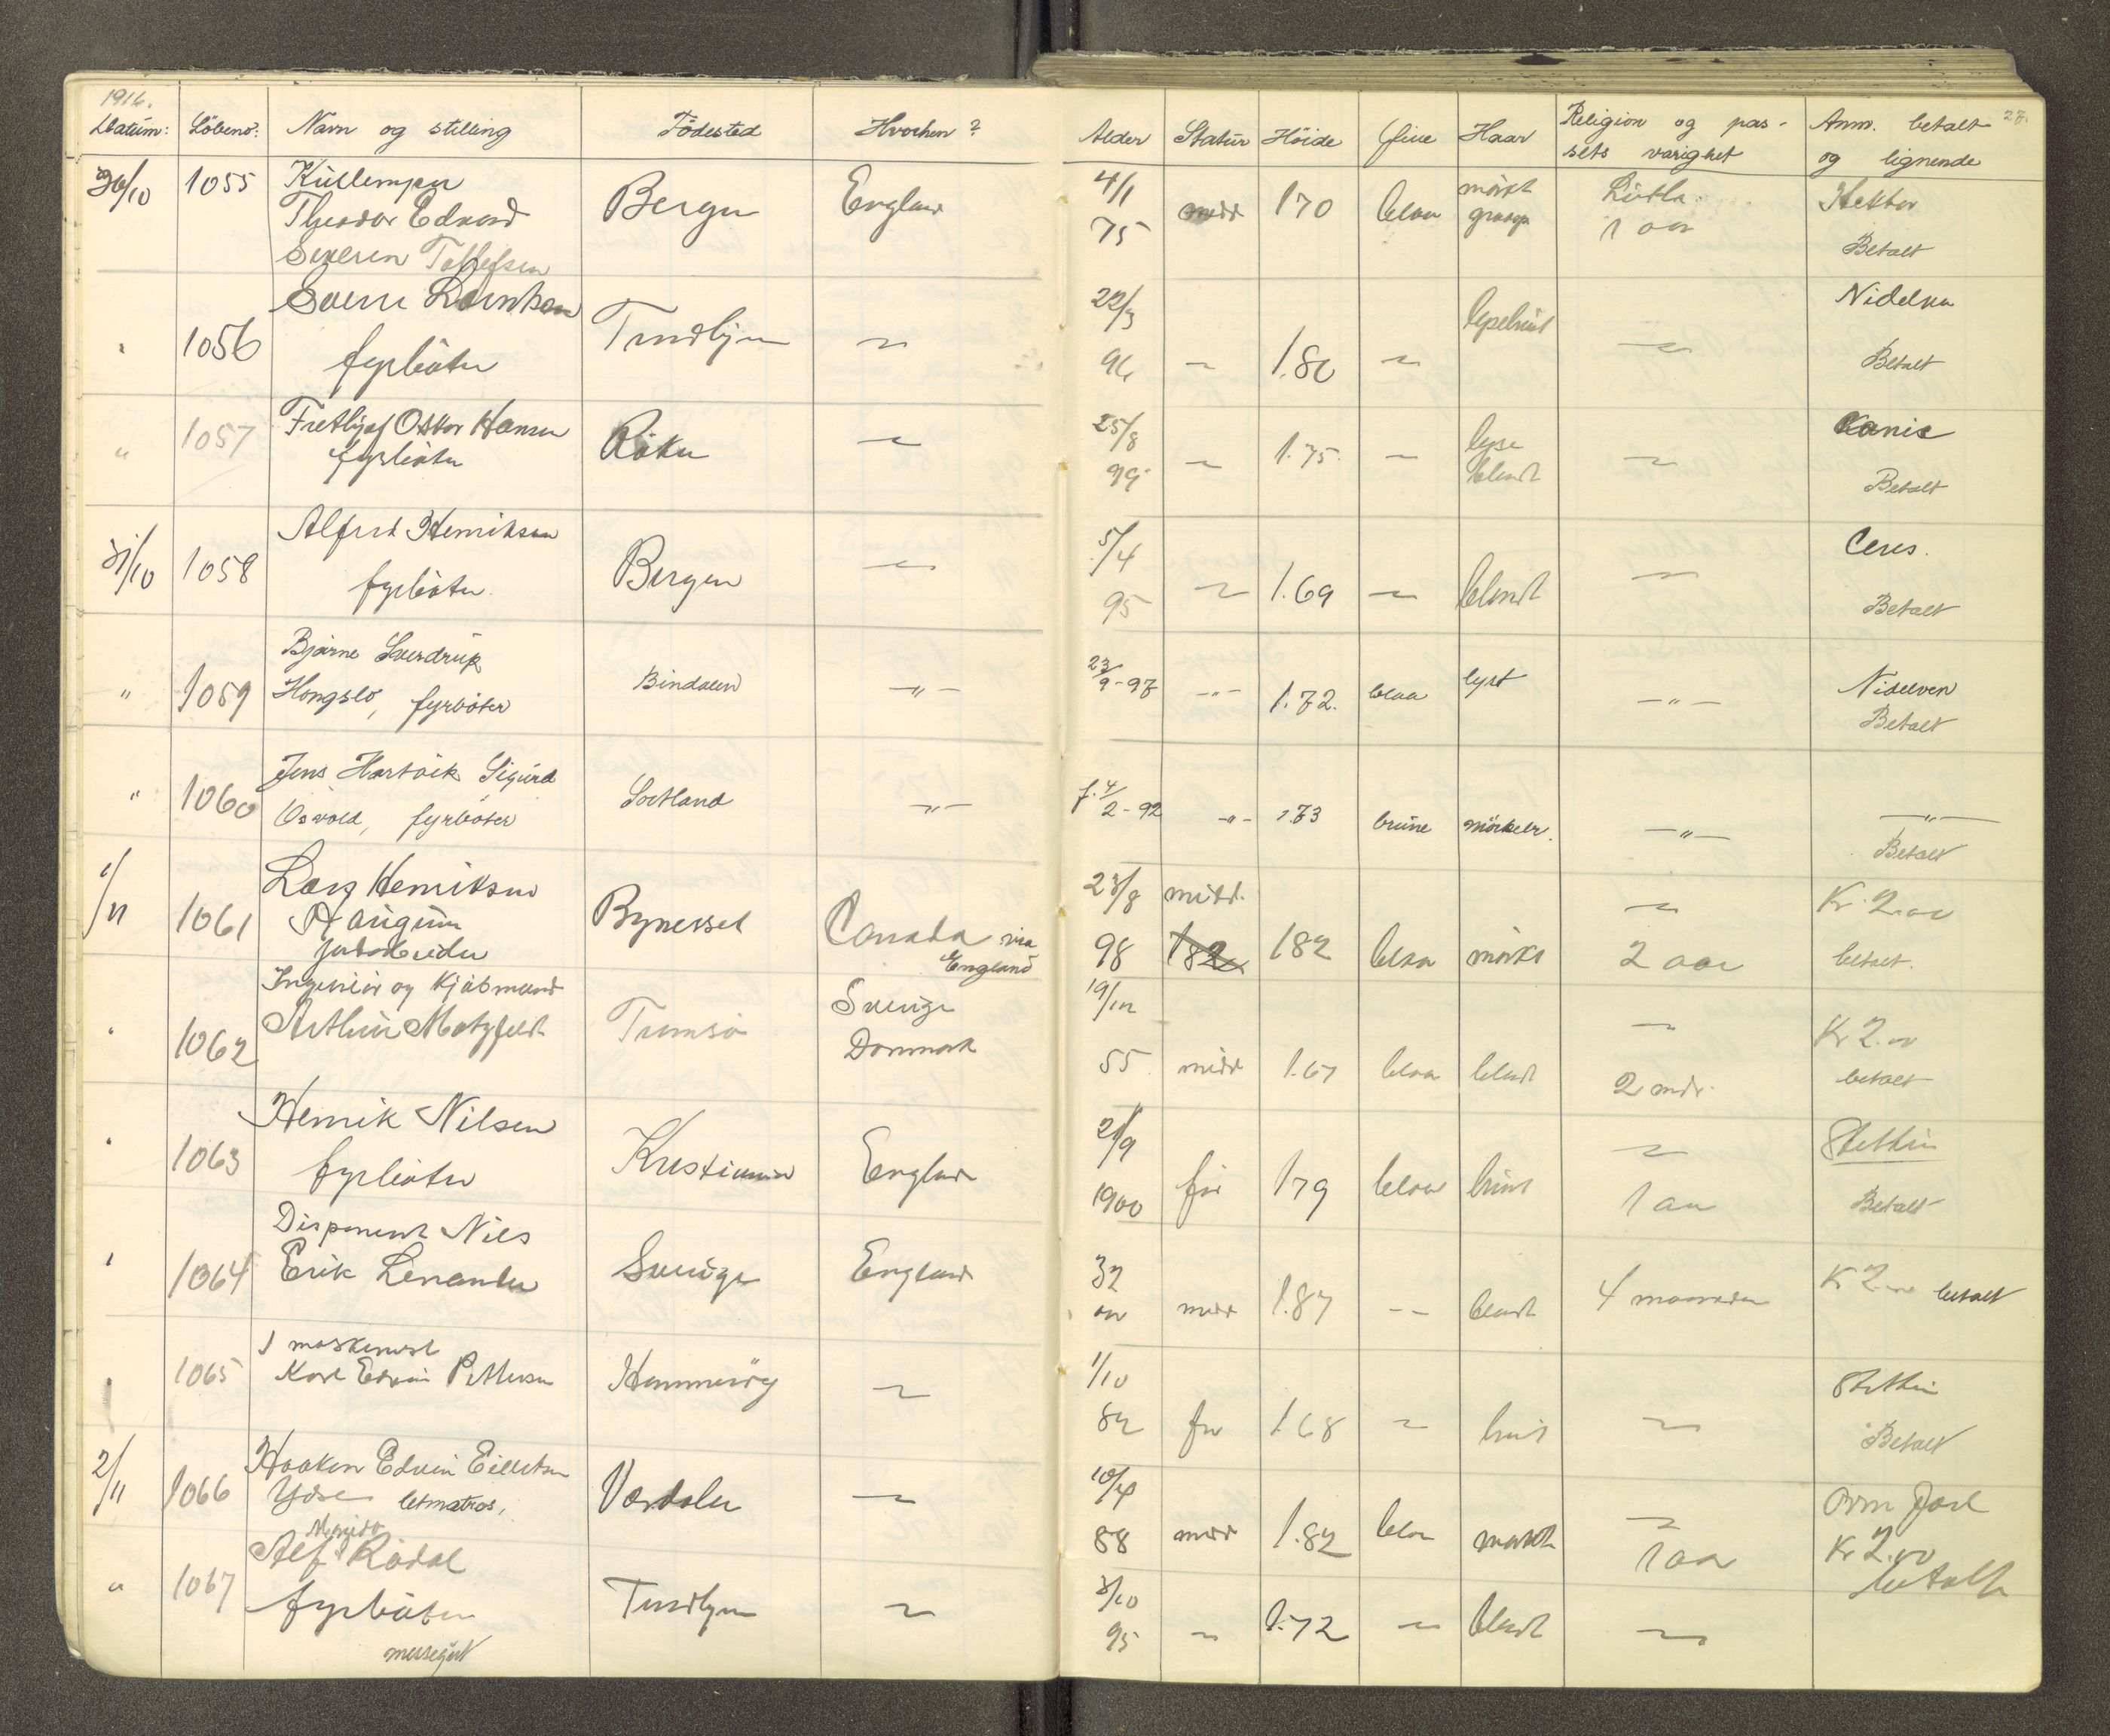 1916.
Datum: Löbeno: Navn og stilling Födested Hvorhen? Alder Statur Höide Öine Haar Religion og pas- sets varighet Anm. betalt og lignende 27.
30/10 1055 Bergen England 4/1 75 midd 170 blaa mörkt Luth. 1 aar Hektor
Theodor Edvard
Severin Betalt
Sverre
" 1056 fyrböter Trondhjem " 22/3 96 " 1.80 " lysebrunt " Nidelven
Betalt
" 1057 Oskar Hansen
fyrböter " 25/8 99 " 1.75 " lyse blondt "
Betalt
31/10 1058 Alfred Henriksen
fyrböter Bergen " 5/4 95 " 1.69 " blondt " Ceres.
Betalt
" 1059 Bjarne Sverdrup
Hongslo, fyrböter Bindalen -"- 23/9-97 -"- 1.72. blaa lyst -"- Nidelven
Betalt
" 1060 Jens Hartvik Sigurd
Osvold, fyrböter Sortland -"- f. 4/2-92 -"- 1.73 brune mörkebr. -"- -"-
Betalt
1/11 1061 Lars Henriksen
Haugum
Bynesset Canada via England 23/8 98 midd. 182 182 blaa mörkt " 2 aar Kr. 2.00
betalt.
" 1062 Ingeniör og
Arthur Motzfeldt Tromsö Sverige
Danmark 19/12 55 midd 1.67 blaa blondt " 2 mdr. Kr 2.00
betalt
" 1063 Henrik Nilsen
fyrböter Kristiania England 21/9 1900 för 179 blaa brunt " 1 aar Stettin
Betalt
" 1064 Disponent Nils
Erik Lenander Sverige England 32 aar midd 1.87 -- blondt 4 maaneder Kr 2.00 betalt
" 1065 1 maskinist
Karl Edvin Pettersen Hammeröy " 1/10 82 1.68 " brunt " Stettin
Betalt
2/11 1066 Haakon Edvin
Ydse letmatros, Værdalen " 10/4 88 midd 1.82 blaa mörkt " 1 aar Orm Jarl
Kr 2.00
betalt
" 1067 Alf Rödal
fyrböter Trondhjem " 3/10 95 " 1.72 " blondt "